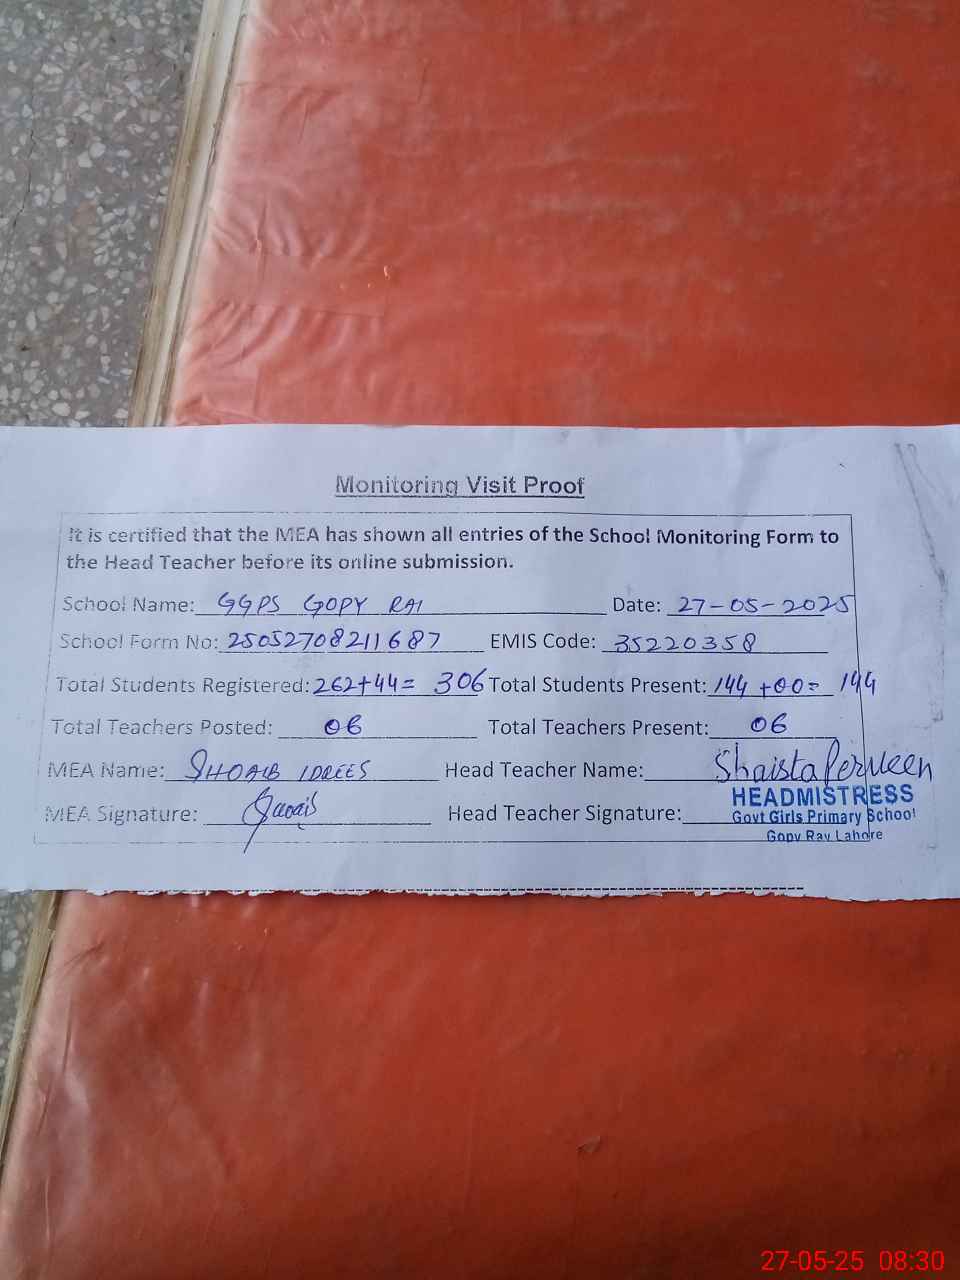 Monitoring Visit Proof
It is certified that the MEA has shown all entries of the School Monitoring Form to
the Head Teacher before its online submission.
School Name: GGPS GOPY RAI Date: 27-05-2025
School Form No: 25052708211687 EMIS Code: 35220358
Total Students Registered: 262+44= 306 Total Students Present: 144 +00= 144
Total Teachers Posted: 06 Total Teachers Present: 06
MEA Name: SHOAIB IDREES Head Teacher Name: Shaista Perveen
MEA Signature: Head Teacher Signature:
HEADMISTRESS
Govt Girls Primary School
Gopy Ray Lahore
27-05-25 08:30